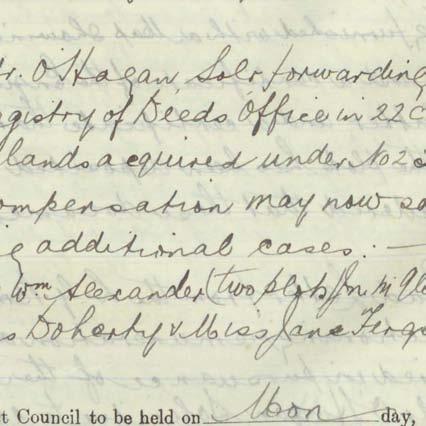 r. O'Hagan Solr forwarding
egistry of Deeds Office in 22 C
lands acquired under No 2 S
ompensation may now
g additional cases: —
Wm Alexander (two plots) Jn
s Doherty & Miss Jane Fergu
t Council to be held on Mon day,